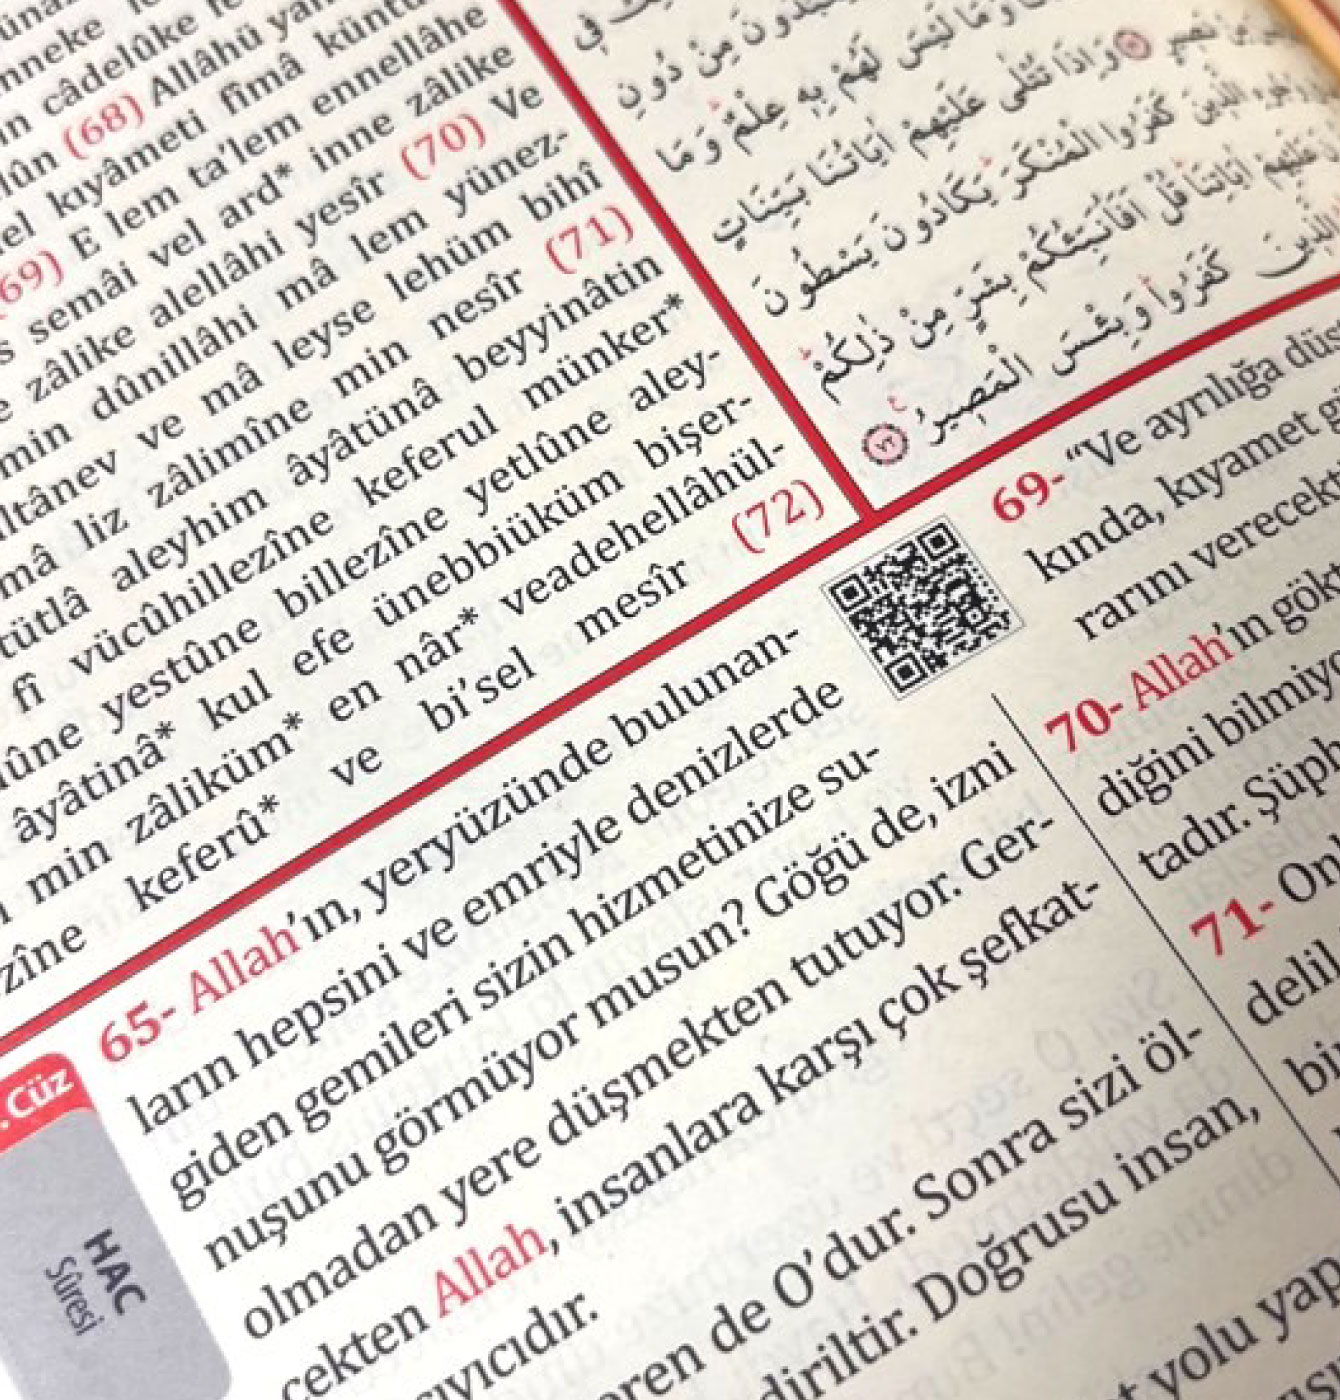 câdelûke
(68) Allâhü
kıyâmeti fîmâ küntü
(69) E lem ta'lem ennellâhe
semâi vel ard* inne zâlike
zâlike alellâhi yesîr (70) Ve
min dûnillâhi mâ lem yünez-
ve mâ leyse lehüm bihî
mâ liz zâlimîne min nesîr (71)
tütlâ aleyhim âyâtünâ beyyinâtin
fî vücûhillezîne keferul münker*
yestûne billezîne yetlûne aley-
âyâtinâ* kul efe ünebbiüküm bişer-
min zâliküm* en nâr* veadehellâhül-
keferû* ve bi'sel mesîr (72)
مِنْ دُونِ
لَيْسَ لَهُمْ بِهِ عِلْمٌ وَمَا
وَإِذَا تُتْلَى عَلَيْهِمْ اٰيَاتُنَا بَيِّنَاتٍ
الَّذِينَ كَفَرُوا الْمُنْكَرَ يَكَادُونَ يَسْطُونَ
عَلَيْهِمْ اٰيَاتِنَا قُلْ اَفَاُنَبِّئُكُمْ بِشَرٍّ مِنْ ذٰلِكُمْ
كَفَرُوا وَبِئْسَ الْمَصِيرُ ٧٢
65- Allah'ın, yeryüzünde bulunan-
ların hepsini ve emriyle denizlerde
giden gemileri sizin hizmetinize su-
nuşunu görmüyor musun? Göğü de, izni
olmadan yere düşmekten tutuyor. Ger-
çekten Allah, insanlara karşı çok şefkat-
de O'dur. Sonra sizi öl-
diriltir. Doğrusu insan,
yolu
69- "Ve ayrılığa
kında, kıyamet
rarını
70- Allah'ın
diğini
tadır.
71-
Cüz
HAC
Sûresi